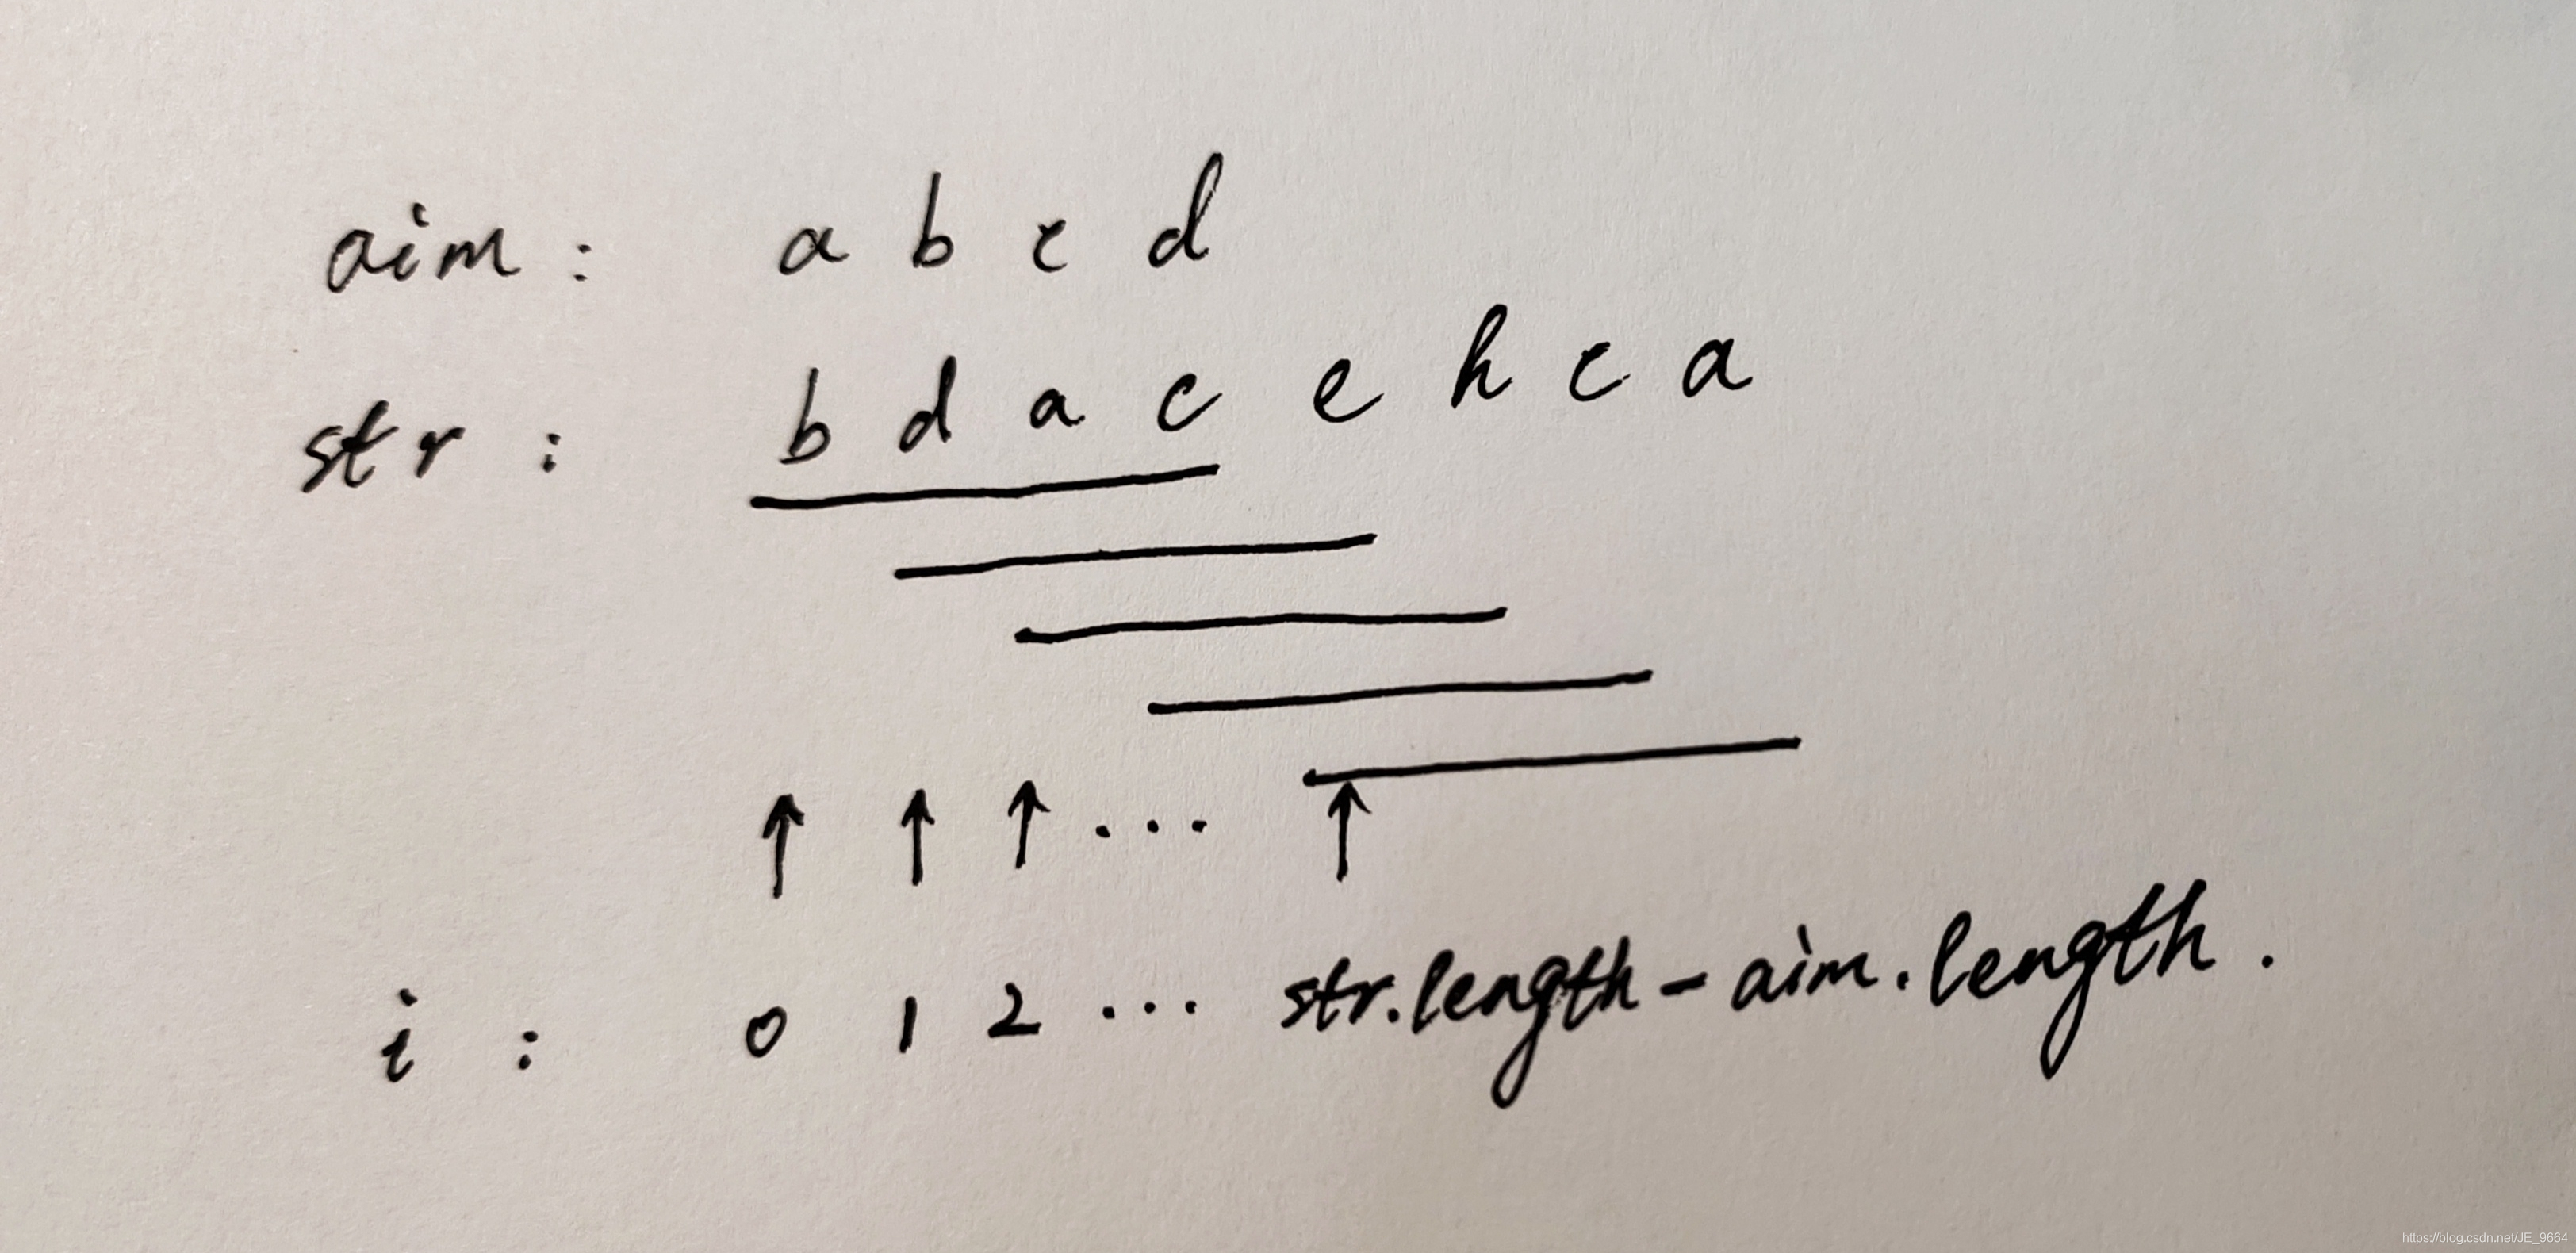 aim : a b c d
str : b d a c e h c a
i : 0 1 2 ... str.length - aim.length .
https://blog.csdn.net/JE_9664